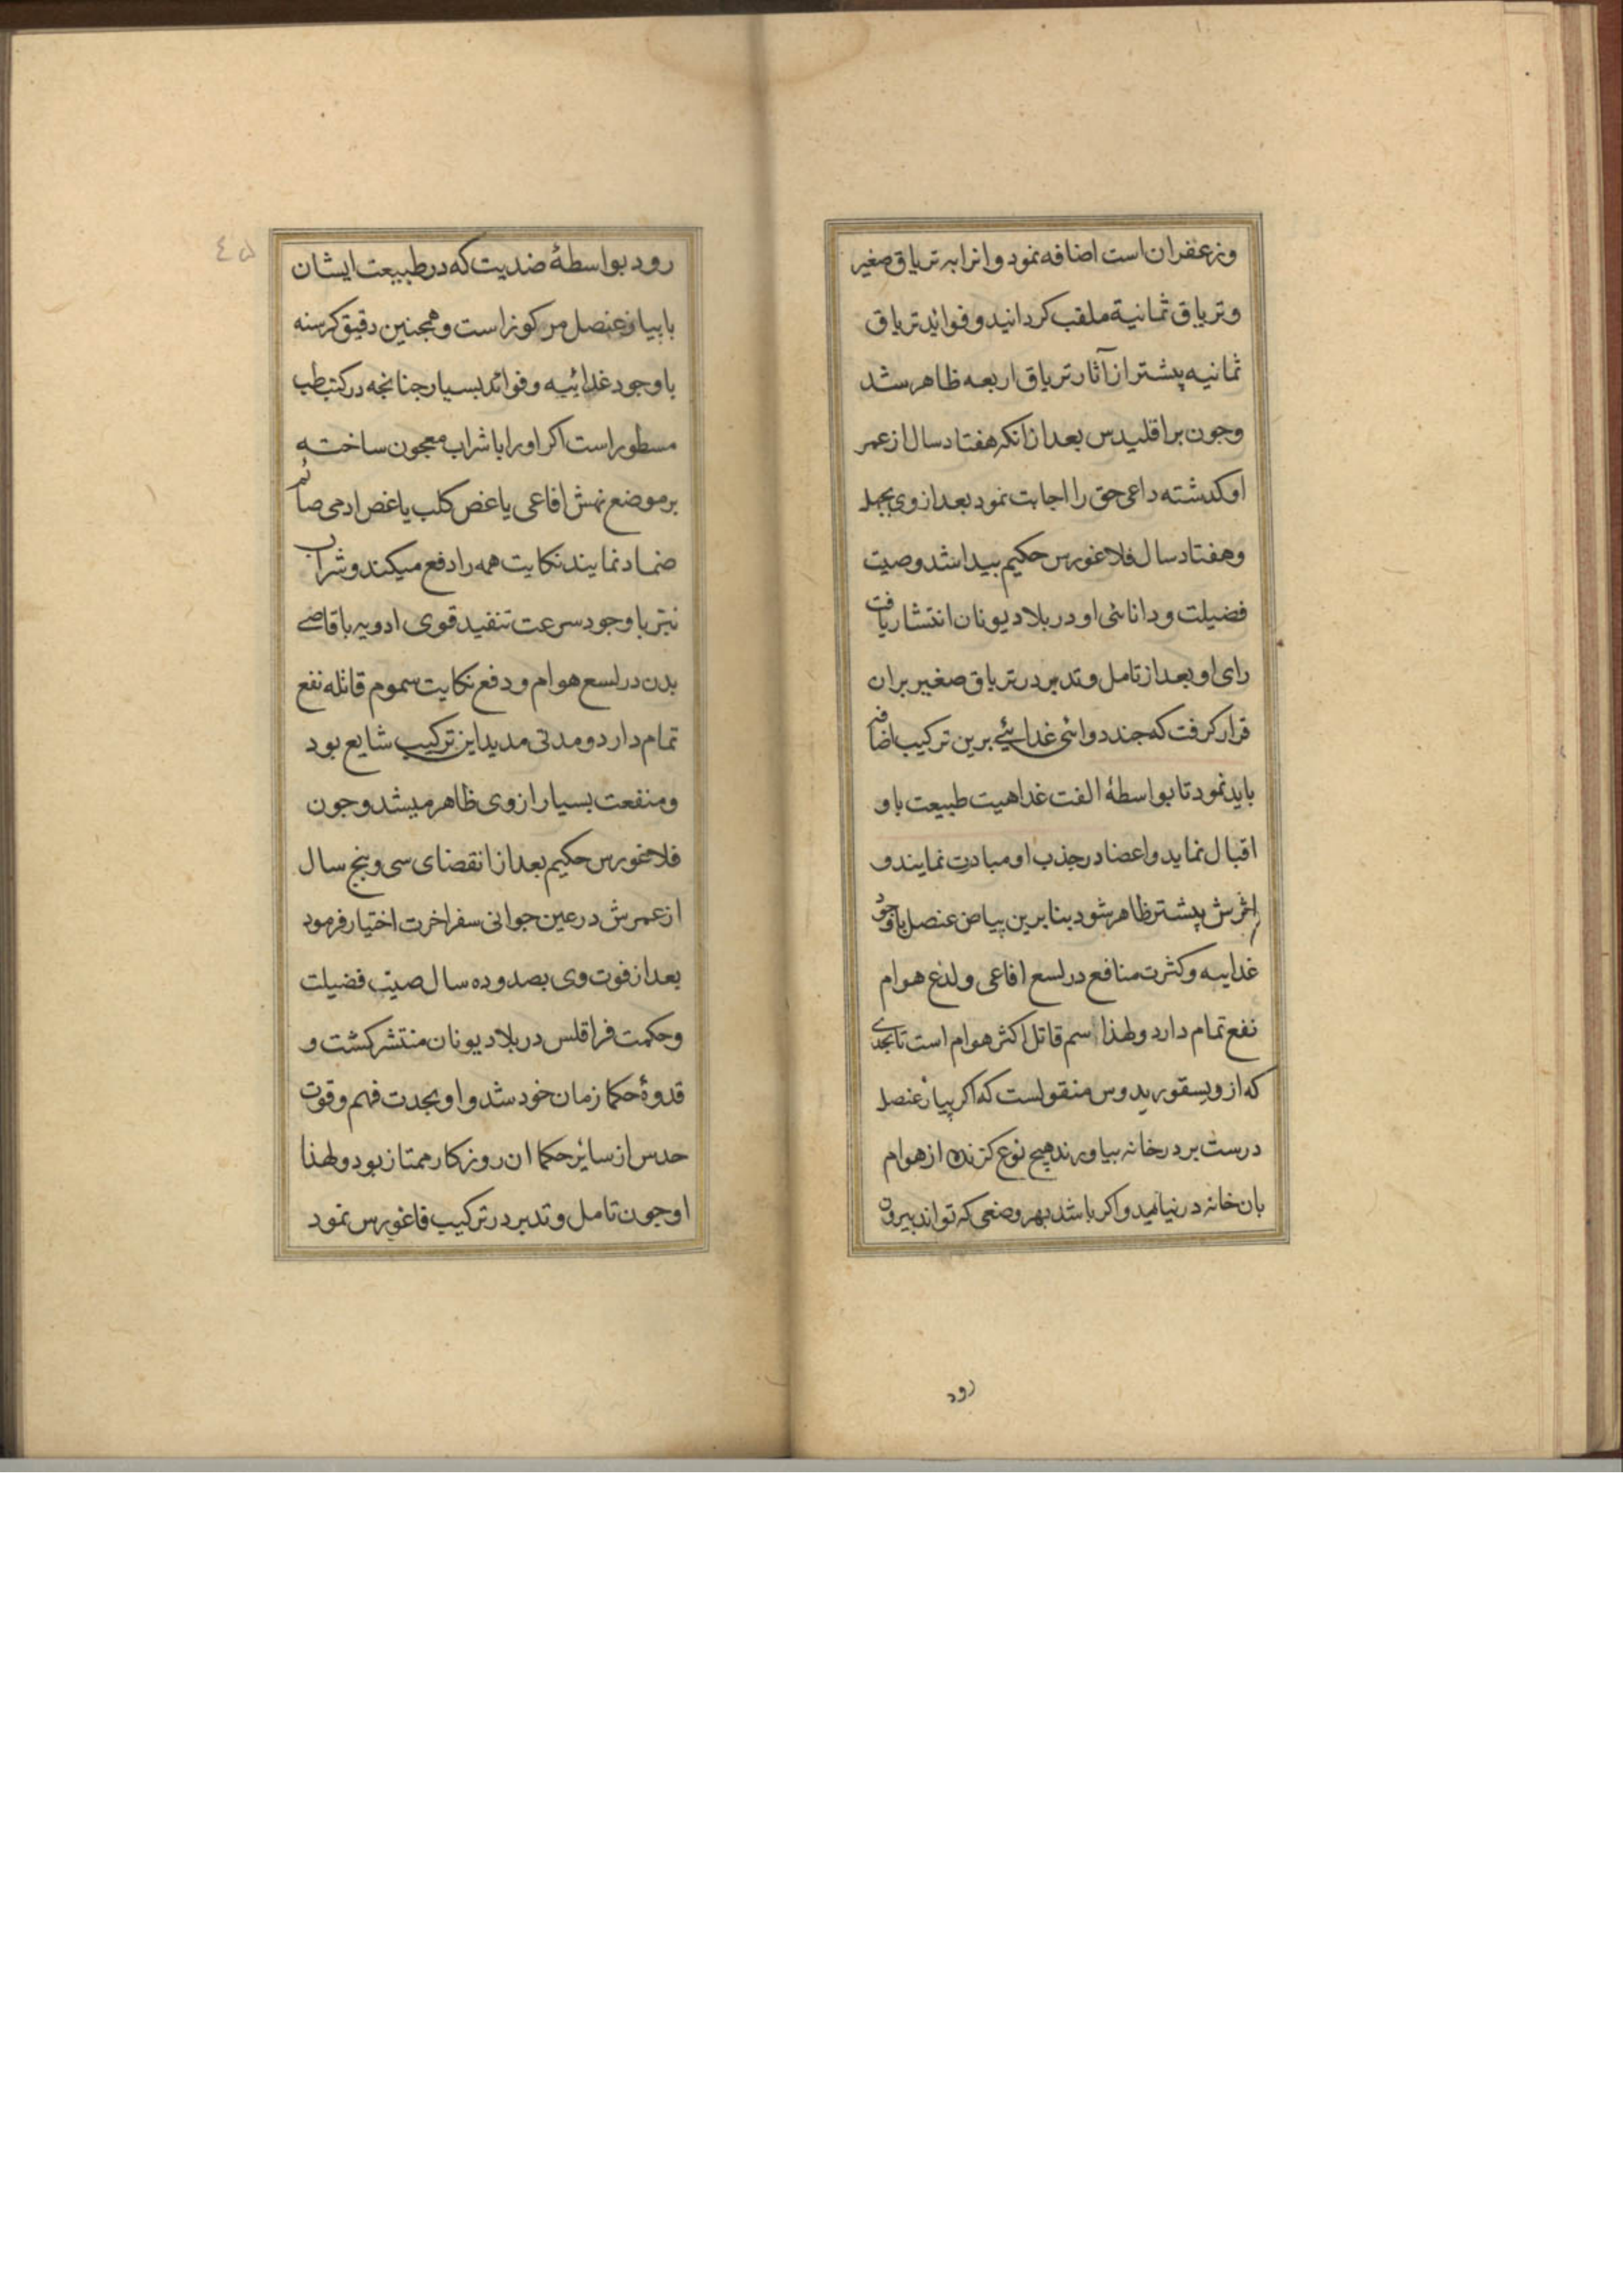 وزعفران است اضافه نمود وانرا به تریاق صغیر
وتریاق ثمانیة ملقب کردانید وفواید تریاق
ثمانیه پیشتر از آثار تریاق اربعه ظاهر شد
وجون براقلیدس بعد از انکه هفتاد سال از عمر
او کدشته داعی حق را اجابت نمود بعد از وی بجهل
وهفتاد سال فلاغورس حکیم بیدا شد وصیت
فضیلت ودانائی او در بلاد یونان انتشار یافت
رای او بعد از تامل وتدبر در تریاق صغیر بران
قرار کرفت که جند دوائی غذایئے برین ترکیب اضافه
باید نمود تا بواسطهٔ الفت غداهیت طبیعت باو
اقبال نماید واعضا در جذب او مبادرت نمایند و
اثرش پیشتر ظاهر شود بنابرین پیاض عنصل باوجود
غداییه وکثرت منافع در لسع افاعی ولدغ هوام
نفع تمام دارد ولهذا اسم قاتل اکثر هوام است تابحدی
که از ویسقوریدوس منقولست که اکر پیاز عنصل
درست بر در خانه بیاورند هیچ نوع کزنده از هوام
بان خانه در نیاید واکر باشد بهر وضعی که تواند بیرون
رود
٤٥
رود بواسطهٔ ضدیت که در طبیعت ایشان
با بیاز عنصل مرکوز است وهمجنین دقیق کرسنه
باوجود غدائیه وفوائد بسیار جنانجه در کتب طب
مسطور است اکر اورا با شراب معجون ساخته
بر موضع نهش افاعی یا غض کلب یا غض ادمی صائم
ضماد نمایند نکایت همه را دفع میکند وشراب
نیز با وجود سرعت تنفید قوی ادویه باقاصے
بدن در لسع هوام ودفع نکایت سموم قاتله نفع
تمام دارد ومدتی مدید این ترکیب شایع بود
ومنفعت بسیار از وی ظاهر میشد وجون
فلاغورس حکیم بعد از انقضای سی وپنج سال
از عمرش در عین جوانی سفر اخرت اختیار فرمود
بعد از فوت وی بصد وده سال صیت فضیلت
وحکمت فراقلس در بلاد یونان منتشر کشت و
قدوهٔ حکما زمان خود شد واو بجدت فهم وقوت
حدس از سائر حکما ان روزکار ممتاز بود ولهذا
او جون تامل وتدبر در ترکیب فاغورس نمود